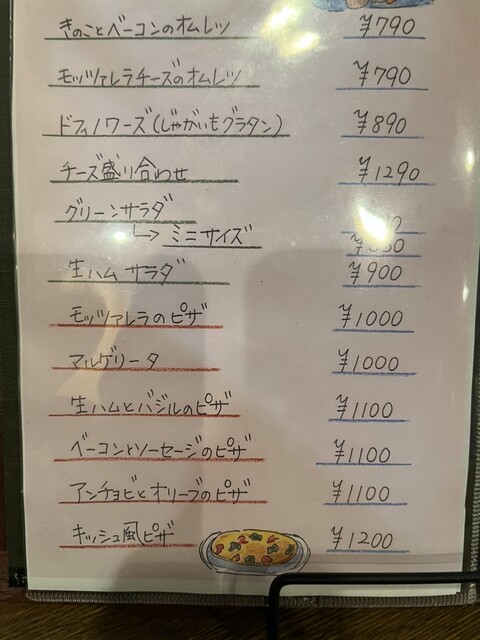 きのことベーコンのオムレツ ¥790
モッツァレラチーズのオムレツ ¥790
ドフィノワーズ(じゃがいもグラタン) ¥890
チーズ盛り合わせ ¥1290
グリーンサラダ
↳ ミニサイズ
生ハムサラダ ¥900
モッツァレラのピザ ¥1000
マルゲリータ ¥1000
生ハムとバジルのピザ ¥1100
ベーコンとソーセージのピザ ¥1100
アンチョビとオリーブのピザ ¥1100
キッシュ風ピザ ¥1200